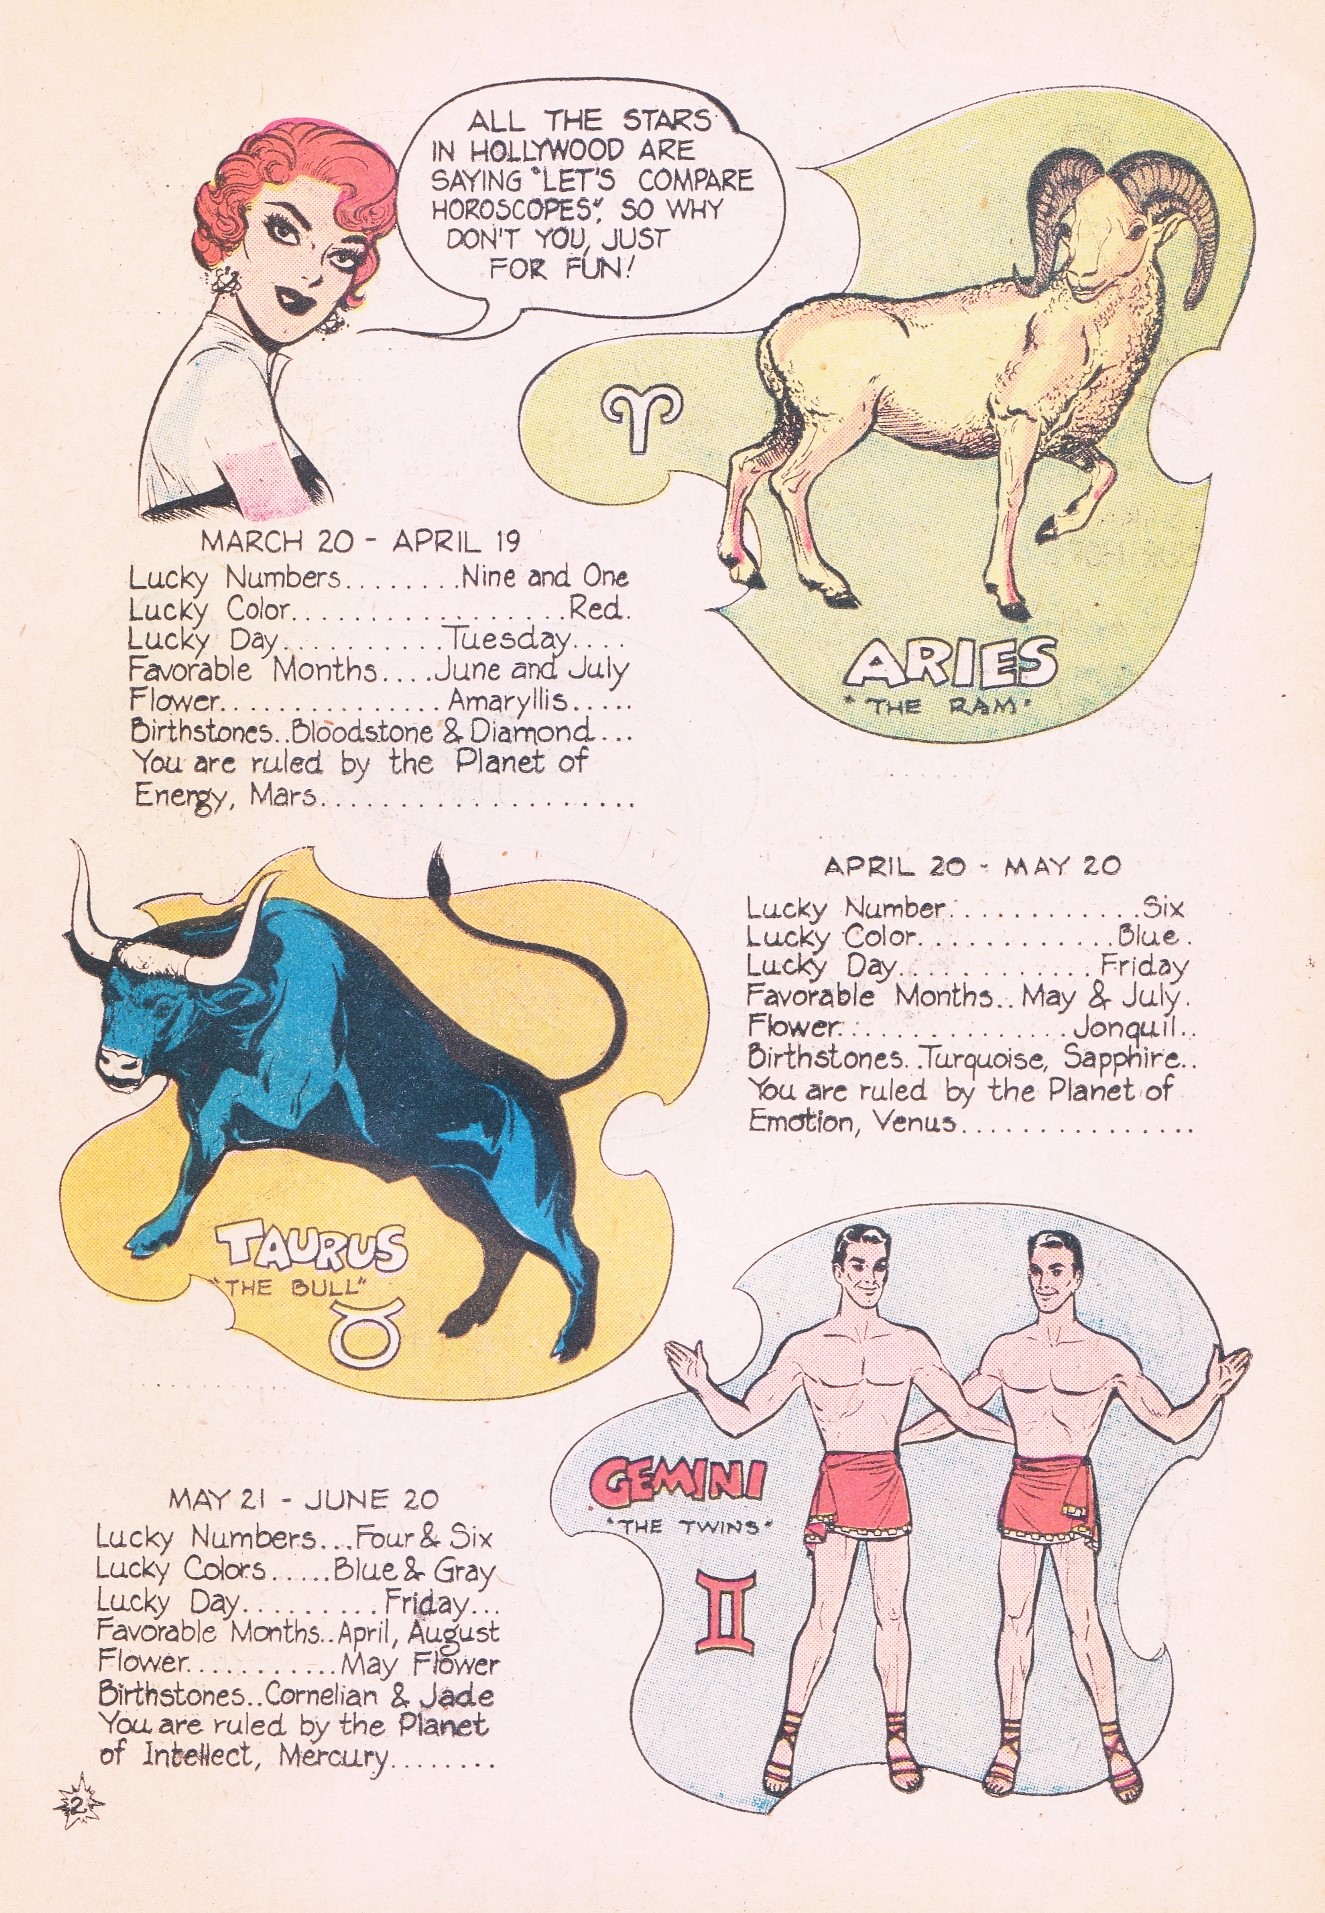 ALL THE STARS
IN HOLLYWOOD ARE
SAYING "LET'S COMPARE
HOROSCOPES", SO WHY
DON'T YOU, JUST
FOR FUN!
MARCH 20 - APRIL 19
Lucky Numbers........Nine and One
Lucky Color..................Red.
Lucky Day...........Tuesday....
Favorable Months....June and July
Flower...............Amaryllis.....
Birthstones..Bloodstone & Diamond...
You are ruled by the Planet of
Energy, Mars....................
ARIES
"THE RAM"
APRIL 20 - MAY 20
Lucky Number............Six
Lucky Color............Blue.
Lucky Day............Friday
Favorable Months..May & July.
Flower...............Jonquil..
Birthstones..Turquoise, Sapphire..
You are ruled by the Planet of
Emotion, Venus...............
TAURUS
"THE BULL"
GEMINI
"THE TWINS"
MAY 21 - JUNE 20
Lucky Numbers...Four & Six
Lucky Colors.....Blue & Gray
Lucky Day.........Friday...
Favorable Months..April, August
Flower...........May Flower
Birthstones..Cornelian & Jade
You are ruled by the Planet
of Intellect, Mercury........
2